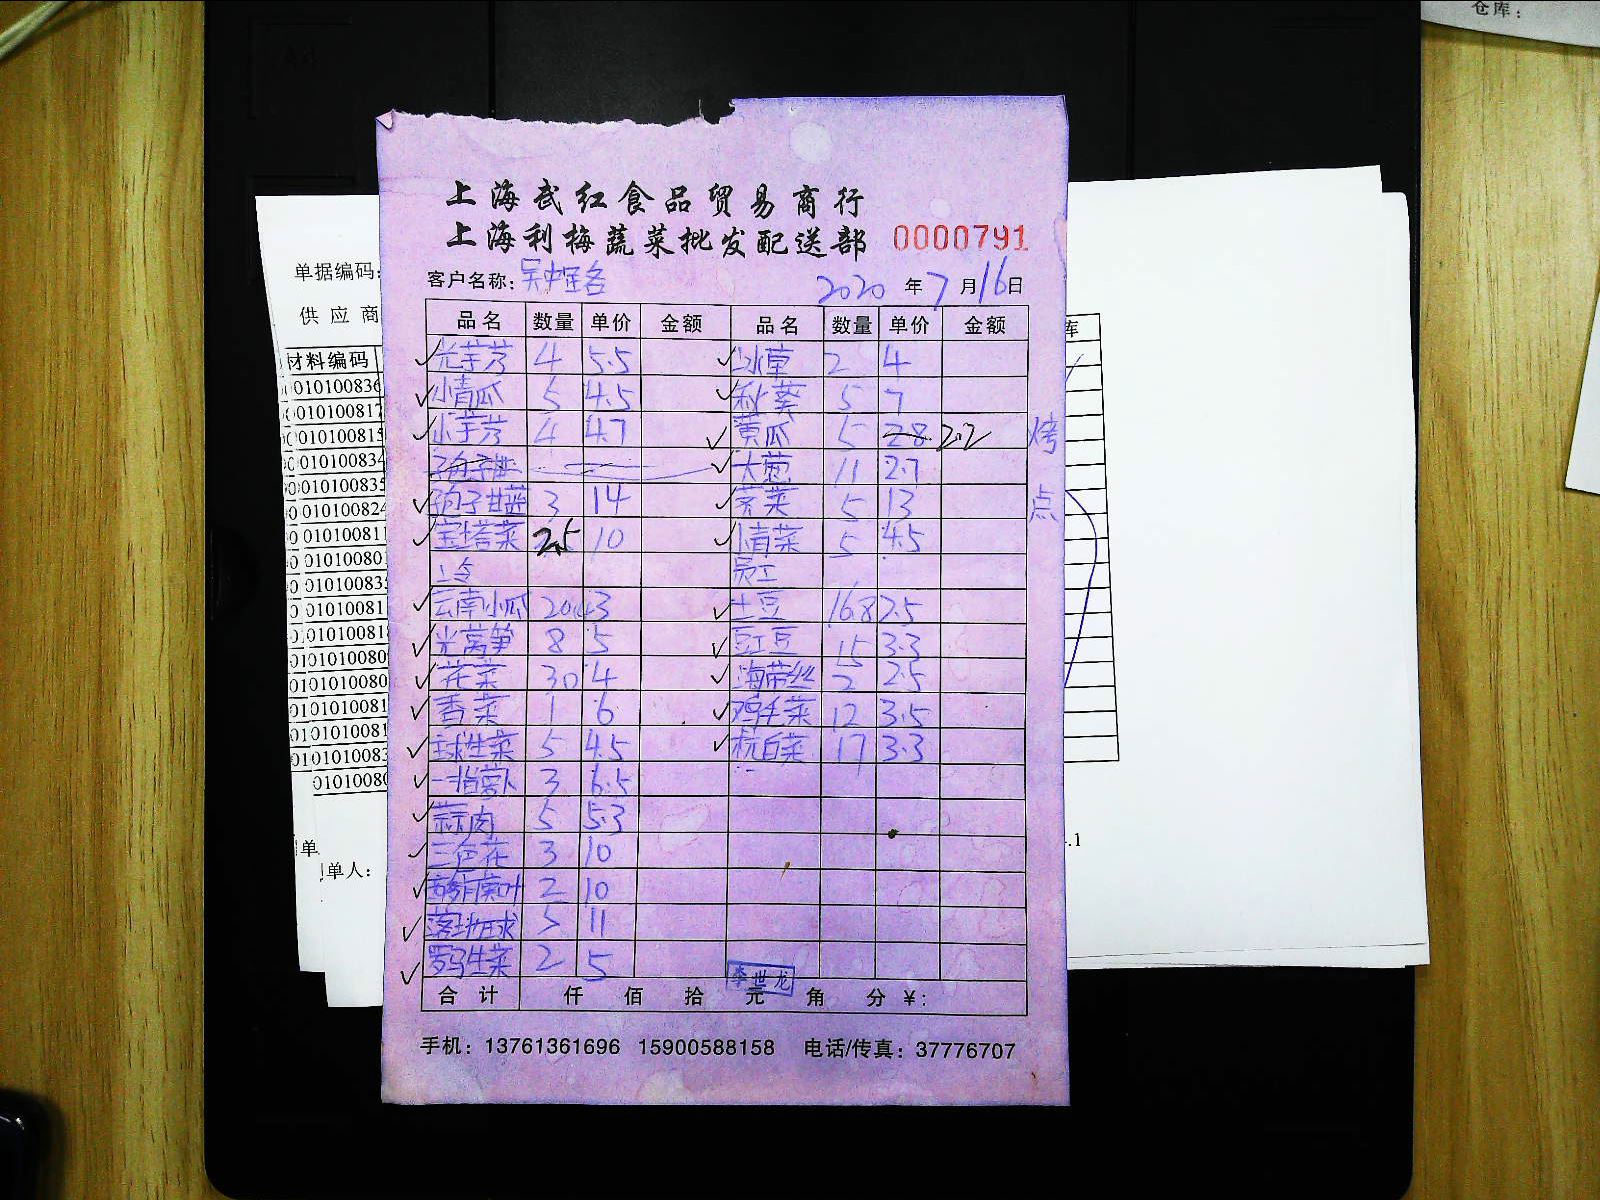 仓库：
上海武红食品贸易商行
上海利梅蔬菜批发配送部 0000791
客户名称： 2020 年 7 月 16 日
品名 数量 单价 金额 品名 数量 单价 金额
光芋艿 4 5.5 冰草 2 4
小青瓜 5 4.5 秋葵 5 7
小芋艿 4 4.7 黄瓜 5 2.8 2.2
孢子 大葱 11 2.7
孢子甘蓝 3 14 荠菜 5 13
宝塔菜 2.5 10 小青菜 5 4.5
上令 员工
云南小瓜 20 3 土豆 16.8 2.5
光莴笋 8 5 豇豆 15 3.3
花菜 30 4 海带丝 2 2.5
香菜 1 6 鸡毛菜 12 3.5
球生菜 5 4.5 杭白菜 17 3.3
一指萝卜 3 6.5
蒜肉 5 5.3
三色花 3 10
2 10
5 11
罗马生菜 2 5
合计 仟 佰 拾 元 角 分 ￥:
李世龙
手机：13761361696 15900588158 电话/传真：37776707
烤
点
单据编码:
供应商
材料编码
010100836
010100817
010100815
010100834
010100835
010100824
010100811
010100801
010100835
01010081
010100818
010100809
01010080
010100081
01010081
010100083
01010080
单
单人：
库
.1